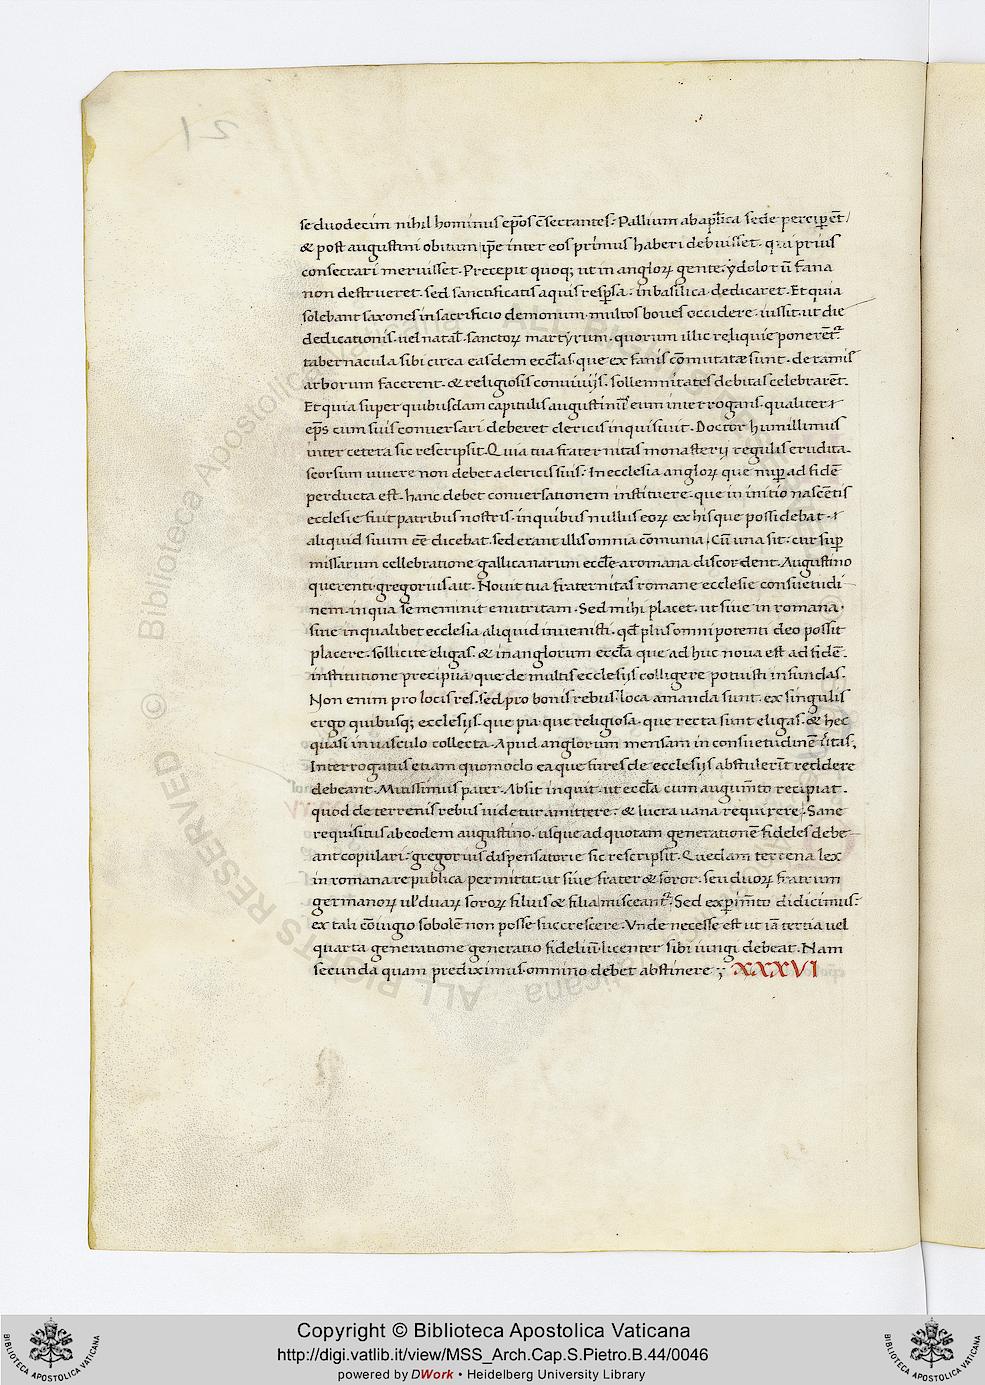 se duodecim nihil hominus ep̄os c̄secrantes. Pallium ab apl̄ica sede perciꝑet /
& post augustini obitum ip̄e inter eos primus haberi debuisset. quia prius
consecrari meruisset. Precepit quoq; ut in angloꝝ gente ẏdoloru᷒ fana
non destrueret. sed sanctificatis aquis resꝑsa. in basilica dedicaret. Et quia
solebant saxones in sacrificio demonum multos boues occidere. iussit. ut die
dedicationis. uel natal̄. sanctoꝝ martyrum. quorum illic reliquie ponerēt᷒
tabernacula sibi circa easdem eccl̄as que ex fanis cōmutatæ sunt. de ramis
arborum facerent. & religiosis conuiuijs. sollemnitates debitas celebrarēt.
Et quia super quibusdam capitulis augustinus eum interrogans. qualiter
ep̄s cum suis conuersari deberet clericis inquisiuit. Doctor humillimus
inter cetera sic rescripsit. Quia tua fraternitas monasterij regulis erudita.
seorsum uiuere non debet a clericis suis. In ecclesia angloꝝ que nuꝑ ad fidē
perducta est. hanc debet conuersationem instituere. que in initio nascētis
ecclesie fuit patribus nostris. in quibus nullus eoꝝ ex his que possidebat.
aliquid suum eē dicebat. sed erant illis omnia cōmunia. Cū una sit. cur suꝑ
missarum cellebratione gallicanarum eccl̄e a romana discordent. Augustino
querenti gregorius ait. Nouit tua fraternitas romane ecclesie consuetudi
nem. in qua se meminit enutritam. Sed mihi placet. ut siue in romana.
siue in qualibet ecclesia aliquid inuenisti. qđ plus omnipotenti deo possit
placere. sollicite eligas. & in anglorum eccl̄a que ad huc noua est ad fidē.
institutione precipua que de multis ecclesijs colligere potuisti infundas.
Non enim pro locis res. sed pro bonis rebus loca amanda sunt. ex singulis
ergo quibusq; ecclesijs. que pia. que religiosa. que recta sunt eligas. & hec
quasi in uasculo collecta. Apud anglorum mensam in consuetudinē u̅tas,
Interrogatus etiam quomodo ea que fures de ecclesijs abstulerīt reddere
debeant. Mitissimus pater. Absit inquit. ut eccl̄a cum augum̄to recipiat.
quod de terrenis rebus uidetur amittere. & lucra uana requirere. Sane
requisitus ab eodem augustino. usque ad quotam generationē fideles debe
ant copulari. gregorius dispensatorie sic rescripsit. Quedam terrena lex
in romana re publica permittit. ut siue frater & soror. seu duoꝝ fratrum
germanoꝝ ul̄ duaꝝ soroꝝ filius & filia misceant᷒. Sed exꝑim̄to didicimus.
ex tali cōiugio sobolē non posse succrescere. Vnde necesse est ut iā tertia uel
quarta generatione generatio fideliū licenter sibi iungi debeat. Nam
secunda quam prediximus. omnino debet abstinere ; XXXVI
21
Copyright © Biblioteca Apostolica Vaticana
http://digi.vatlib.it/view/MSS_Arch.Cap.S.Pietro.B.44/0046
powered by DWork • Heidelberg University Library